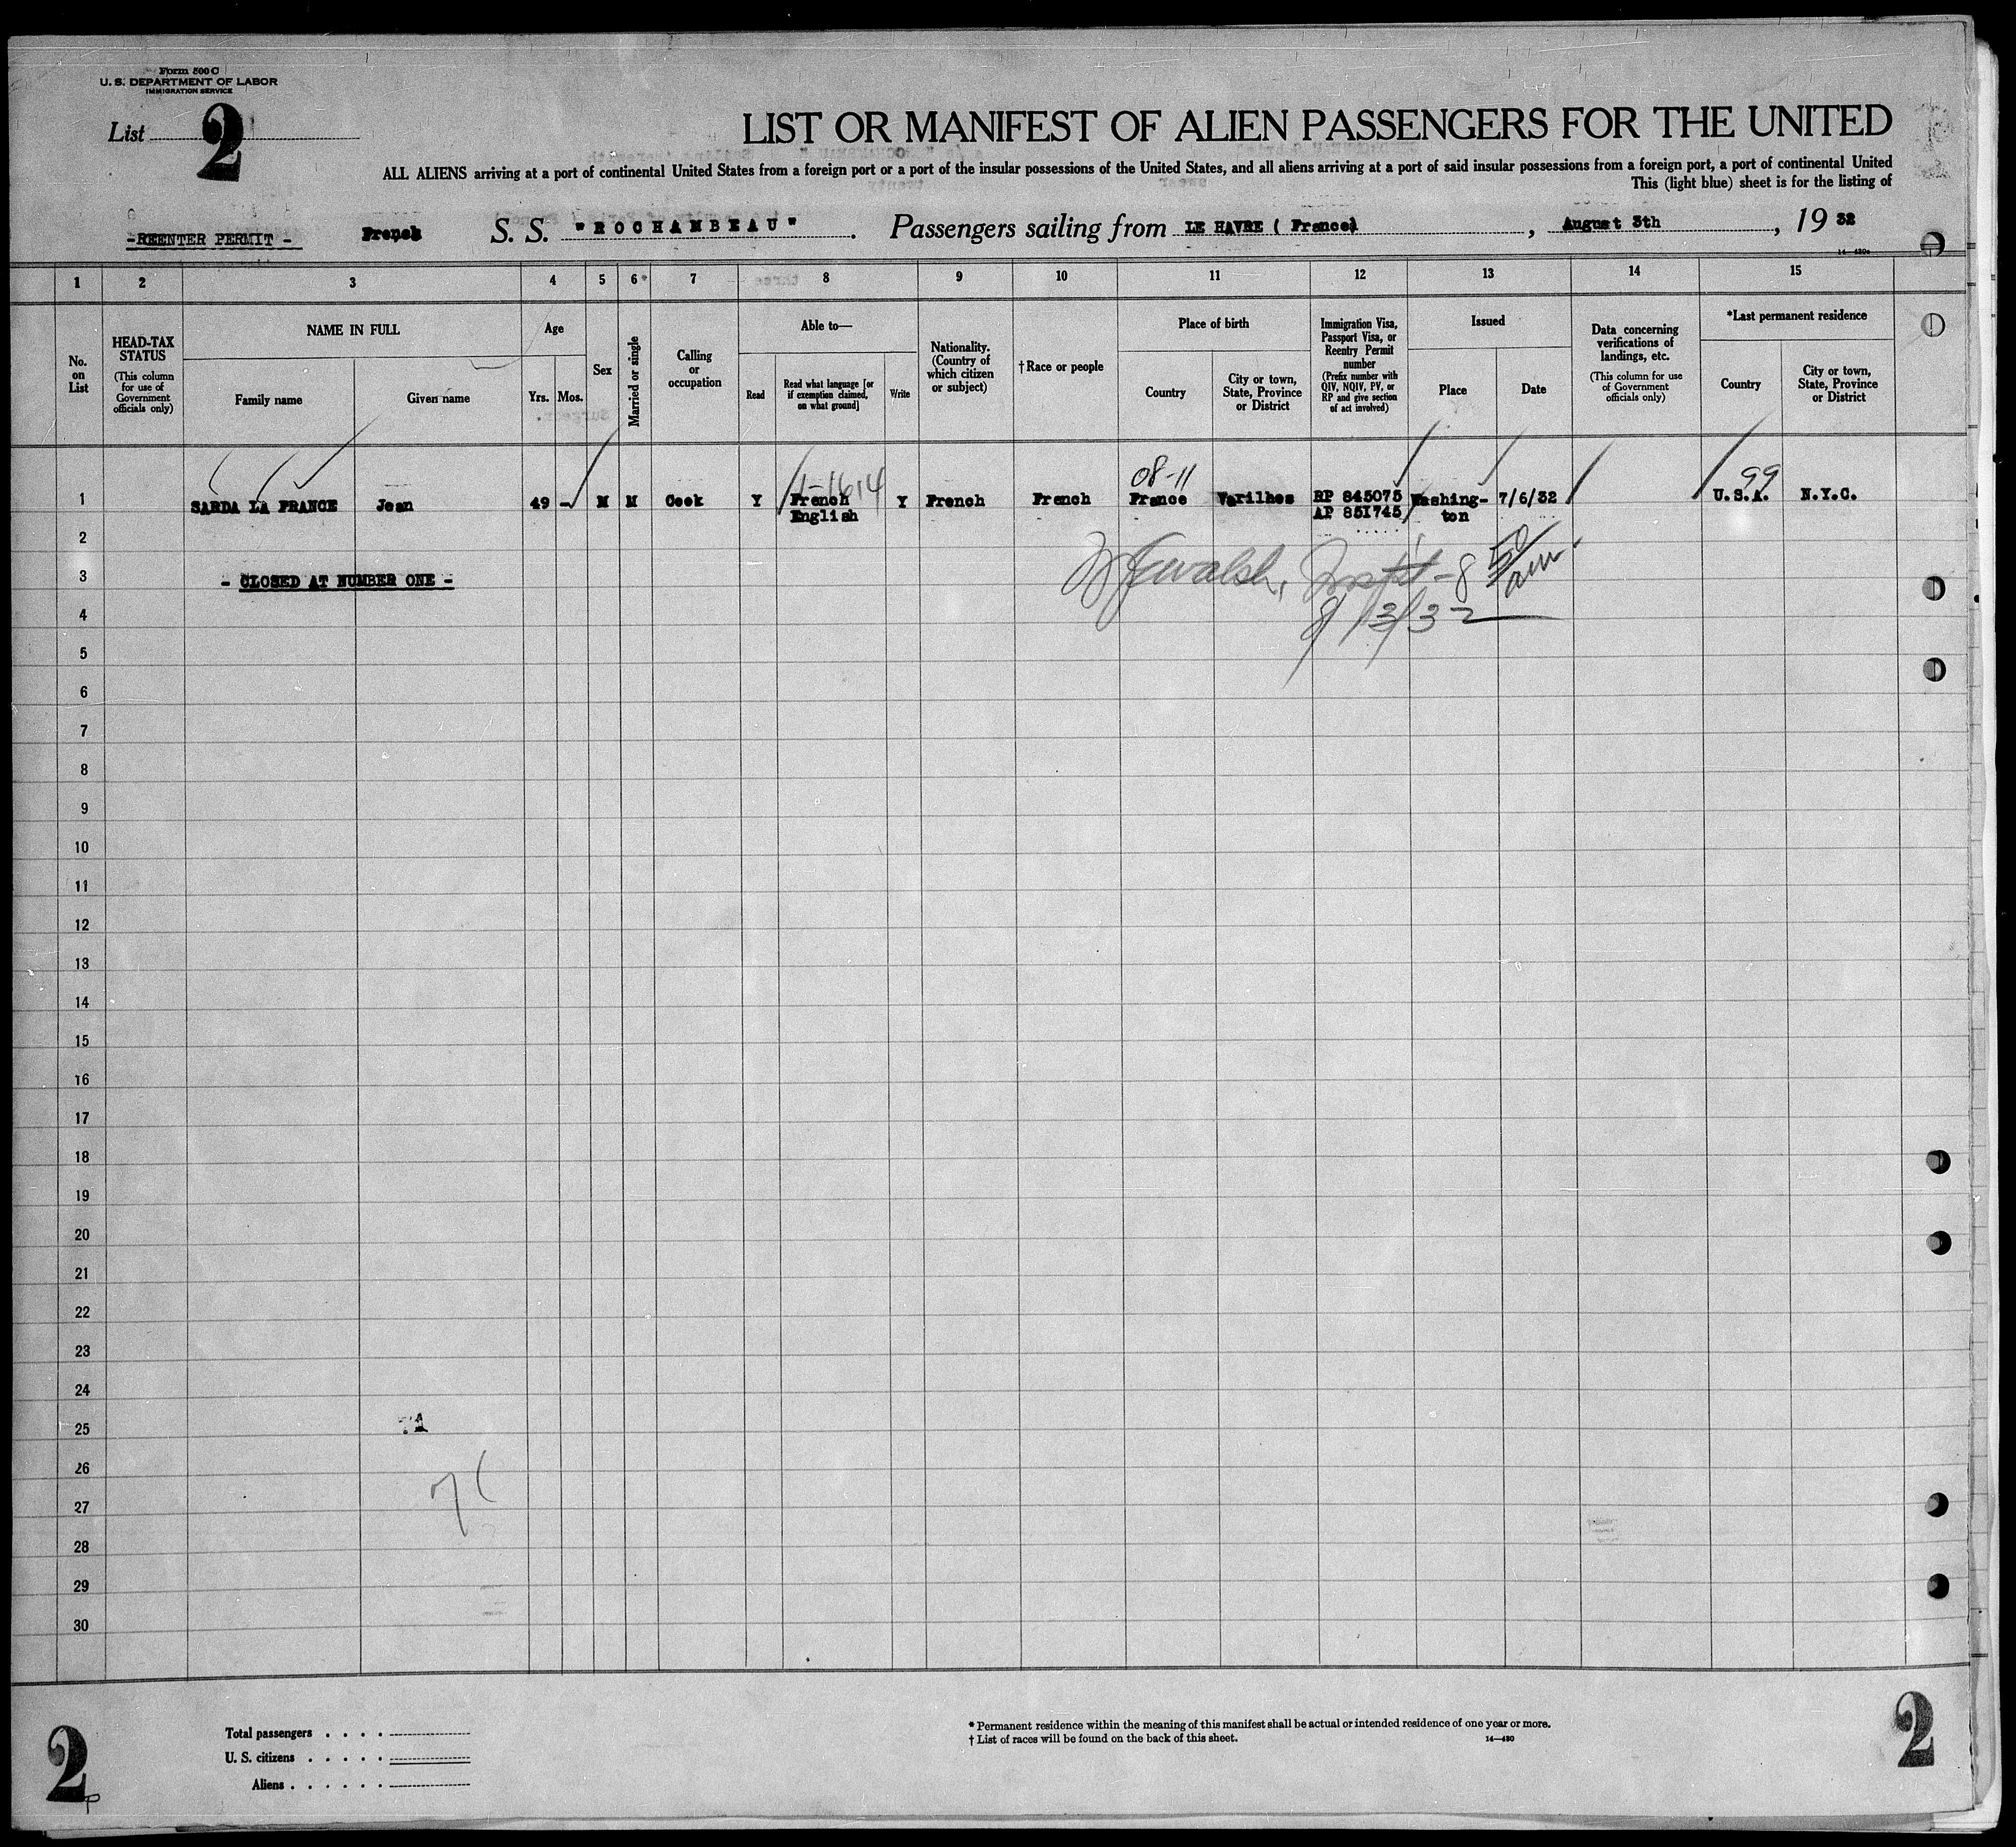 Form 500 C
U. S. DEPARTMENT OF LABOR
IMMIGRATION SERVICE
List 2
LIST OR MANIFEST OF ALIEN PASSENGERS FOR THE UNITED
ALL ALIENS arriving at a port of continental United States from a foreign port or a port of the insular possessions of the United States, and all aliens arriving at a port of said insular possessions from a foreign port, a port of continental United
This (light blue) sheet is for the listing of
-REENTER PERMIT - French S. S. "ROCHAMBEAU" Passengers sailing from LE HAVRE ( France) , August 3th , 19 32
1 2 3 4 5 6* 7 8 9 10 11 12 13 14 15
No. on List
HEAD-TAX STATUS
(This column for use of Government officials only)
NAME IN FULL
Family name
Given name
Age
Yrs. Mos.
Sex
Married or single
Calling or occupation
Able to—
Read
Read what language [or if exemption claimed, on what ground]
Write
Nationality. (Country of which citizen or subject)
†Race or people
Place of birth
Country
City or town, State, Province or District
Immigration Visa, Passport Visa, or Reentry Permit number
(Prefix number with QIV, NQIV, PV, or RP and give section of act involved)
Issued
Place
Date
Data concerning verifications of landings, etc.
(This column for use of Government officials only)
*Last permanent residence
Country
City or town, State, Province or District
08-11 99
1 SARDA LA FRANCE Jean 49 - M M Cook Y French Y French French France Varilhes RP 845075 Washing- 7/6/32 U.S.A. N.Y.C.
English AP 851745 ton
2
3 - CLOSED AT NUMBER ONE -
8/13/32
4
5
6
7
8
9
10
11
12
13
14
15
16
17
18
19
20
21
22
23
24
25
26
27
28
29
30
2
Total passengers . . . .
U. S. citizens . . . . .
Aliens . . . . . .
* Permanent residence within the meaning of this manifest shall be actual or intended residence of one year or more.
† List of races will be found on the back of this sheet.
14—430
2